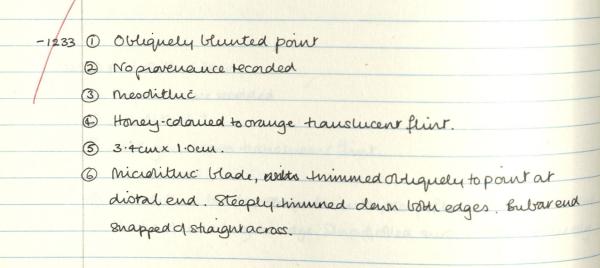 -1233 ① Obliquely blunted point
② No provenance recorded
③ Mesolithic
④ Honey-coloured to orange translucent flint.
⑤ 3.4cm x 1.0cm.
⑥ Microlithic blade, trimmed obliquely to point at
distal end. Steeply trimmed down both edges. Bulbar end
snapped off straight across.